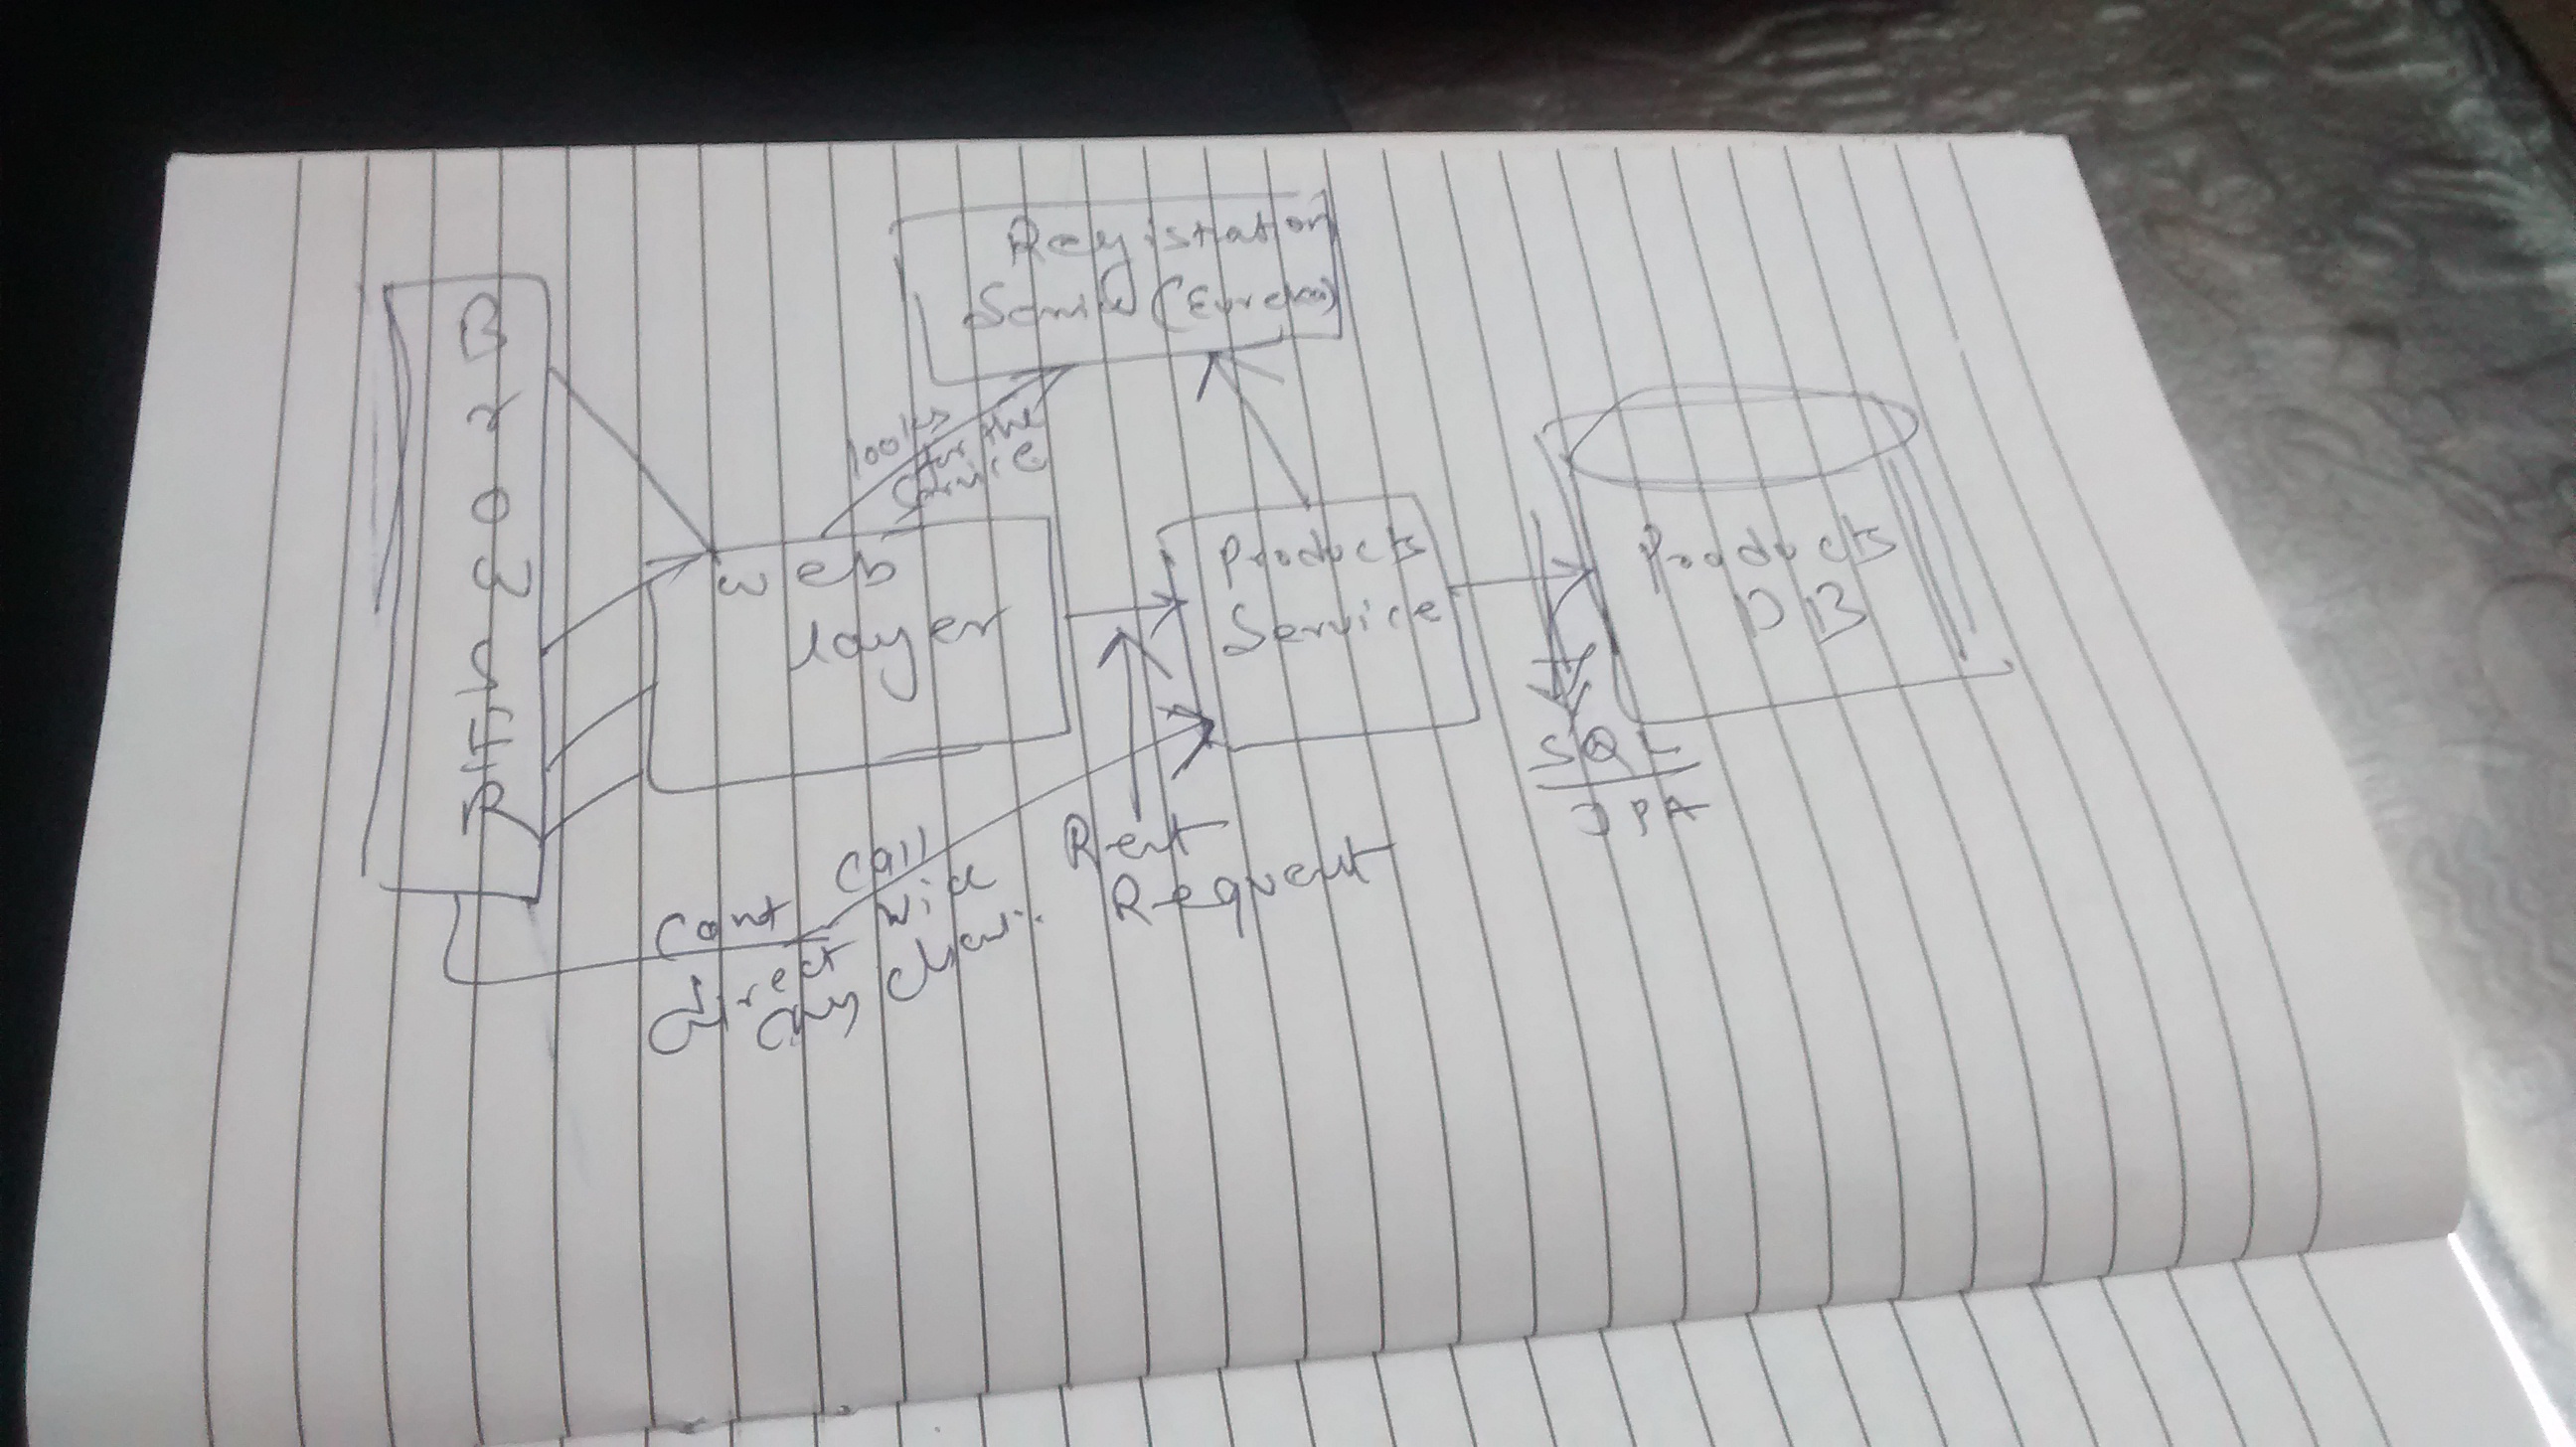 Registration
Service (Eureka)
Browser
looks
for the
service
web
layer
Products
Service
Products
DB
SQL
JPA
Rest
Request
Cant
call
direct